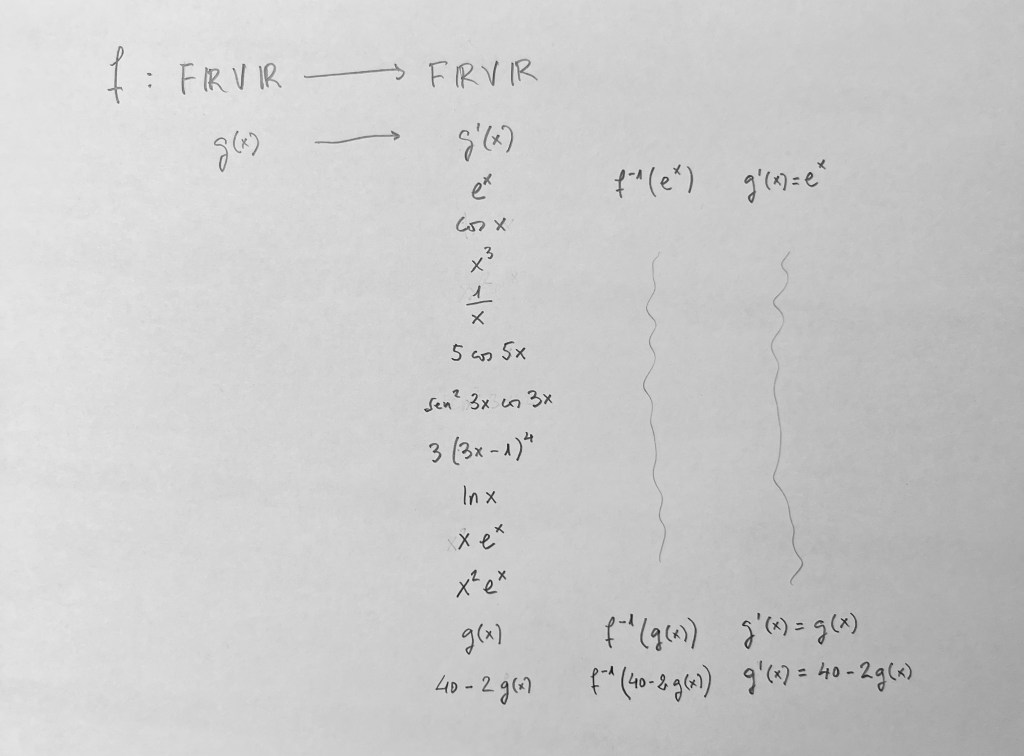 f : FIRVIR ⟶ FIRVIR
g(x) ⟶ g'(x)
eˣ f⁻¹(eˣ) g'(x)=eˣ
cos x
x³
1/x
5 cos 5x
sen² 3x cos 3x
3 (3x-1)⁴
ln x
x eˣ
x² eˣ
g(x) f⁻¹(g(x)) g'(x) = g(x)
40 - 2 g(x) f⁻¹(40-2g(x)) g'(x) = 40 - 2g(x)